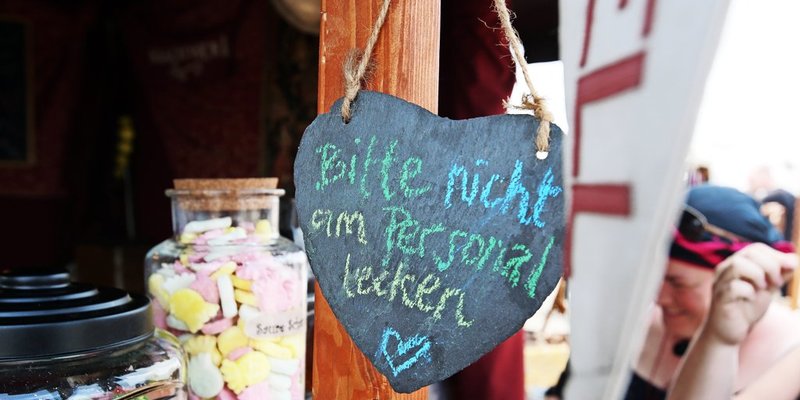 Bitte nicht
am Personal
lecken
Saure